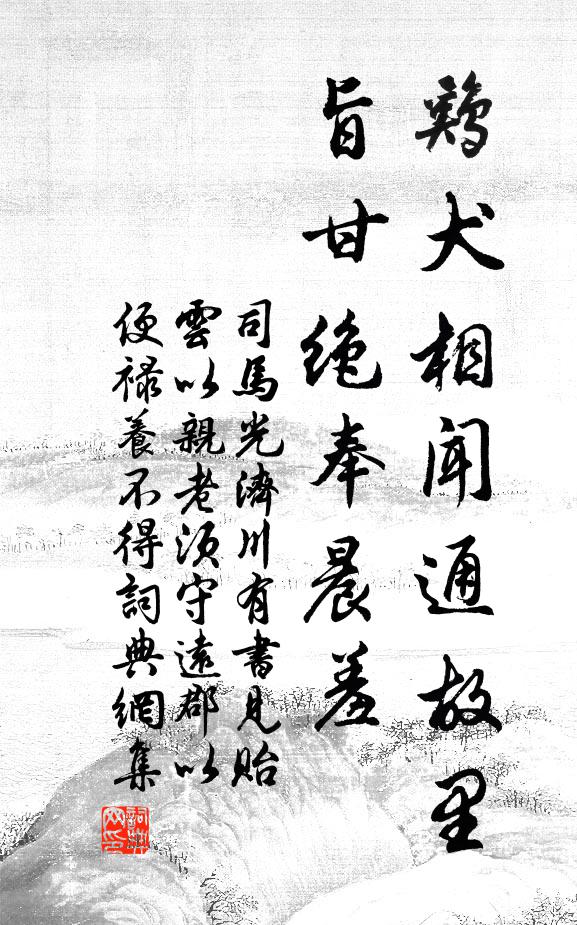 鷄犬相聞通故里
旨甘絶奉晨羞
司馬光濟川有書見貽
雲以親老須守遠郡以
便禄養不得詞典網集
詞典网印